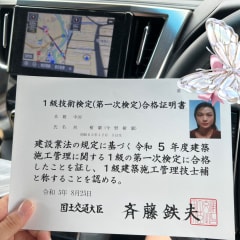 1級技術検定(第一次検定)合格証明書
建設業法の規定に基づく令和5年度建築
施工管理に関する1級の第一次検定に合格
したことを証し、1級建築施工管理技士補
と称することを認める。
令和5年8月25日
国土交通大臣 斉藤鉄夫